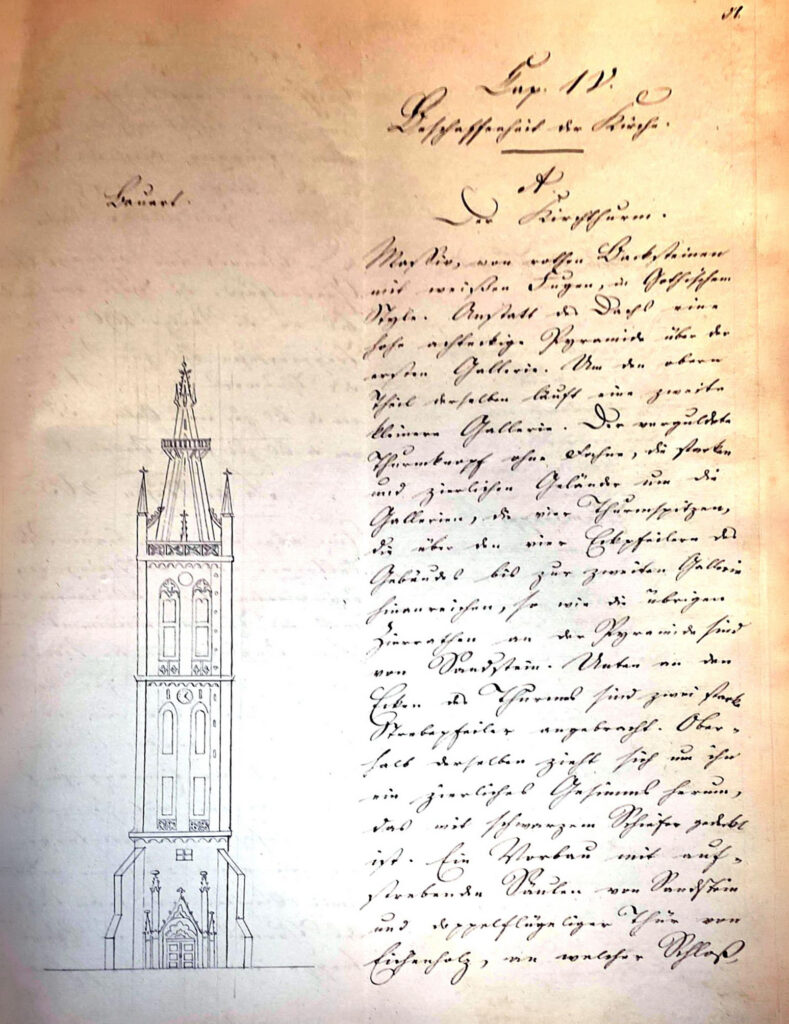 Cap. IV.
Beschaffenheit der Kirche.
A.
Der Kirchthurm.
Bauart.
Massiv, von rothen Backsteinen
mit weißen Fugen, in Gothischem
Style. Anstatt des Dachs eine
hohe achteckige Pyramide über der
ersten Gallerie. Um den obern
Theil derselben läuft eine zweite
kleinere Gallerie. Der verguldete
Thurmknopf ohne Fahne, die starken
und zierlichen Geländer um die
Gallerien, die vier Thurmspitzen,
die über den vier Eckpfeilern des
Gebäudes bis zur zweiten Gallerie
hinanreichen, so wie die übrigen
Zierrathen an der Pyramide sind
von Sandstein. Unten an den
Ecken des Thurms sind zwei starke
Strebepfeiler angebracht. Ober-
halb derselben zieht sich um ihn
ein zierliches Gesimms herum,
das mit schwarzem Schiefer gedeckt
ist. Ein Vorbau mit auf-
strebenden Säulen von Sandstein
und doppelflügeliger Thür von
Eichenholz, an welcher Schloß,